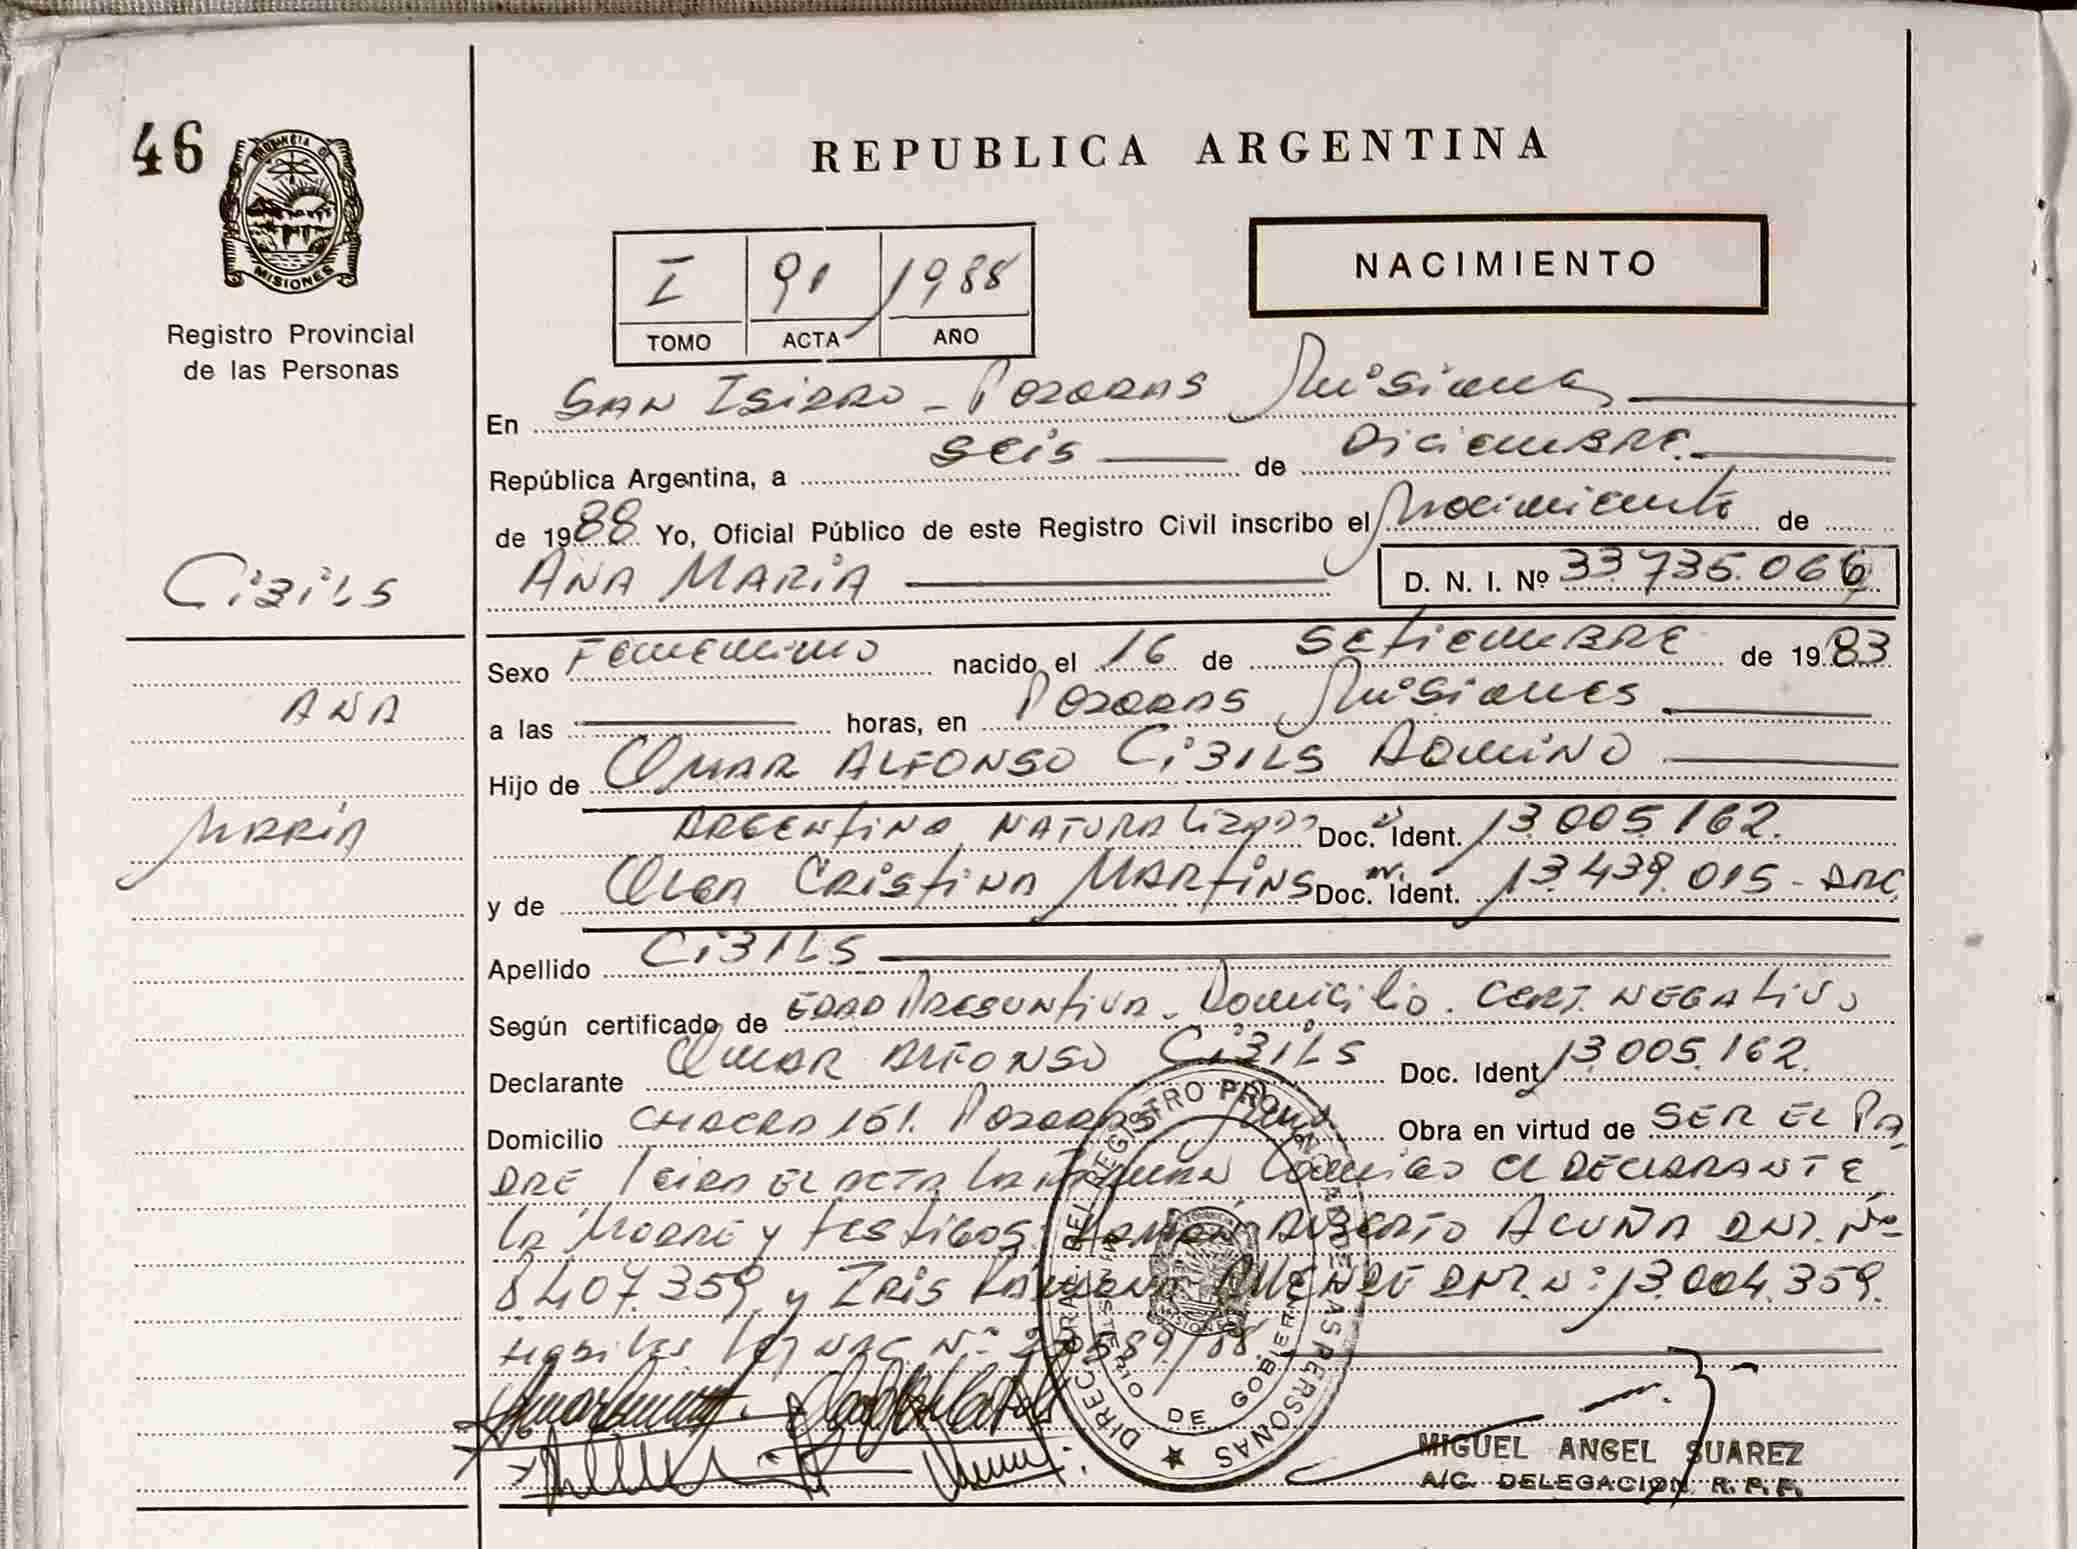 46
PROVINCIA DE
MISIONES
Registro Provincial
de las Personas
REPUBLICA ARGENTINA
I 91 1988
TOMO ACTA AÑO
NACIMIENTO
En San Isidro - Posadas Misiones
República Argentina, a seis de Diciembre
de 1988 Yo, Oficial Público de este Registro Civil inscribo el Nacimiento de
Cibils
Ana María
D. N. I. Nº 33.735.066
Sexo Femenino nacido el 16 de Setiembre de 1983
Ana
a las horas, en Posadas Misiones
Hijo de Omar Alfonso Cibils Domino
María
Argentino naturalizado Doc. Ident. 13.005.162.
y de Olga Cristina Martins Doc. Ident. 13.439.015 - Arg
Apellido Cibils
Según certificado de Edad Presuntiva - Domicilio. Cert. Negativo
Declarante Omar Alfonso Cibils Doc. Ident 13.005.162.
Domicilio Chacra 151. Posadas Obra en virtud de ser el Pa
dre leida el acta la firman conmigo el declarante
la Madre y testigos: Ramón Alberto Acuña DNI. Nº
8407.359 y Iris Ramona Allende DNI. Nº 13.004.359.
habiles ley nac. Nº 23.589/88.
DIRECC. GRAL. DEL REGISTRO PROVINCIAL DE LAS PERSONAS
MINISTERIO DE GOBIERNO
MIGUEL ANGEL SUAREZ
A/C. DELEGACION R. P. P.